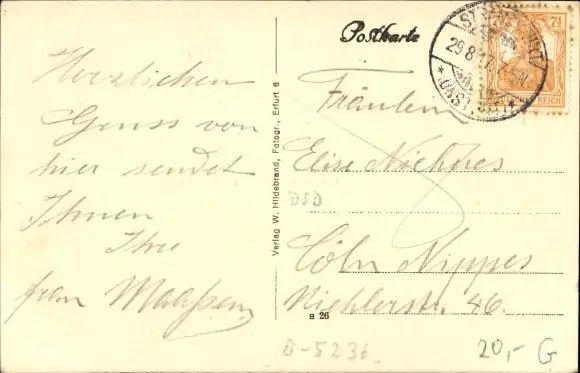 Postkarte
Herzlichen
Gruss von
hier sendet
Ihnen
Ihre
frau Maaßen
Verlag W. Hildebrand, Fotogr., Erfurt 6
29.8.17
7½
REICH
Fräulein
Elise
DSD
Cöln Nippes
Niehlerstr. 46.
B 26
B-5236
20,- G